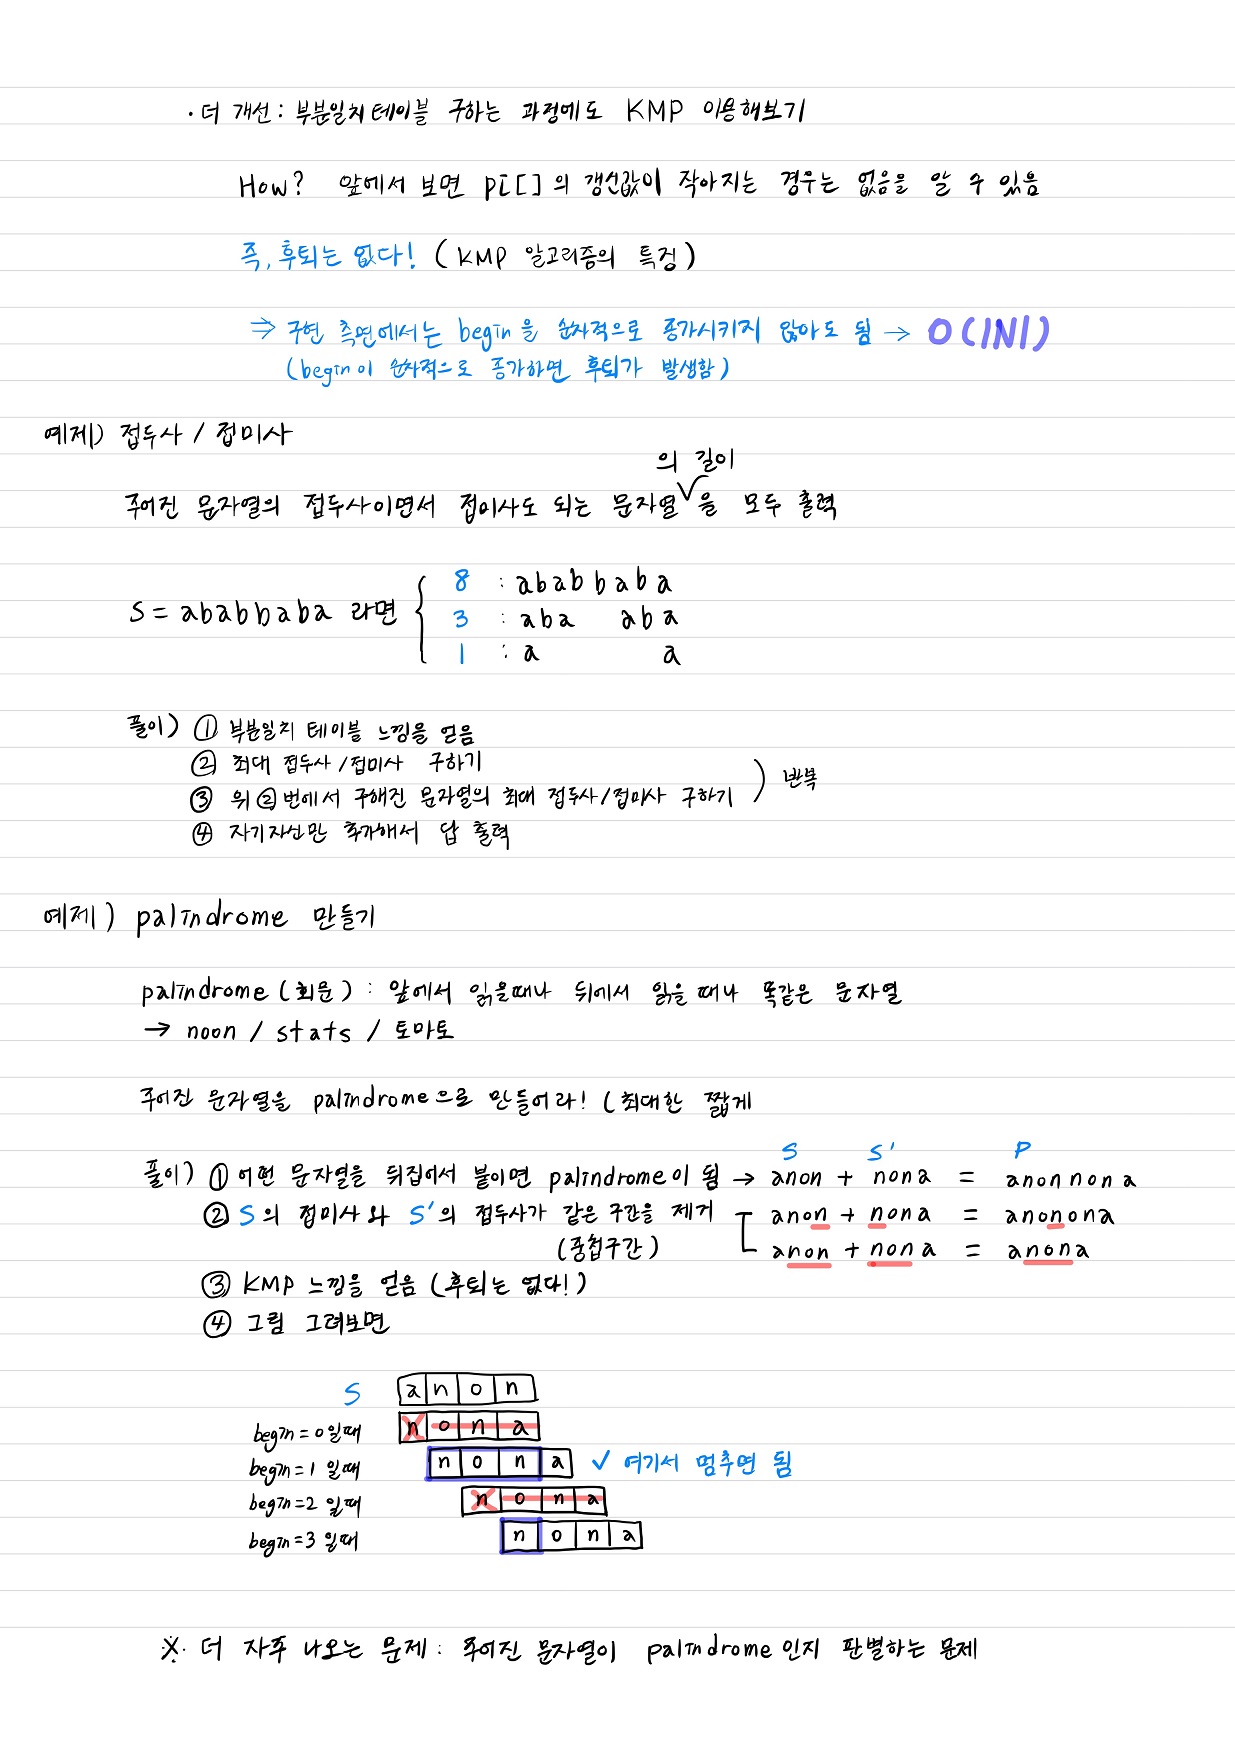 · 더 개선 : 부분일치 테이블 구하는 과정에도 KMP 이용해보기
How? 앞에서 보면 pi[]의 갱신값이 작아지는 경우는 없음을 알 수 있음
즉, 후퇴는 없다! (KMP 알고리즘의 특징)
⇒ 구현 측면에서는 begin을 순차적으로 증가시키지 않아도 됨 → O(|N|)
(begin이 순차적으로 증가하면 후퇴가 발생함)
예제) 접두사 / 접미사
의 길이
주어진 문자열의 접두사이면서 접미사도 되는 문자열을 모두 출력
8 : ababbaba
S = ababbaba 라면 3 : aba aba
1 : a a
풀이) ① 부분일치 테이블 느낌을 얻음
② 최대 접두사/접미사 구하기
③ 위 ②번에서 구해진 문자열의 최대 접두사/접미사 구하기 ) 반복
④ 자기자신만 추가해서 답 출력
예제) palindrome 만들기
palindrome (회문) : 앞에서 읽을때나 뒤에서 읽을 때나 똑같은 문자열
→ noon / stats / 토마토
주어진 문자열을 palindrome으로 만들어라! (최대한 짧게
S S' P
풀이) ① 어떤 문자열을 뒤집어서 붙이면 palindrome이 됨 → anon + nona = anonnona
② S의 접미사와 S'의 접두사가 같은 구간을 제거 anon + nona = anonona
(중첩구간) anon + nona = anona
③ KMP 느낌을 얻음 (후퇴는 없다!)
④ 그림 그려보면
S a n o n
begin=0일때 n o n a
begin=1일때 n o n a ✓ 여기서 멈추면 됨
begin=2일때 n o n a
begin=3일때 n o n a
※ 더 자주 나오는 문제 : 주어진 문자열이 palindrome인지 판별하는 문제